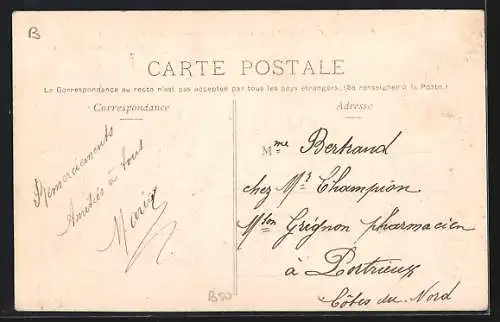 B
CARTE POSTALE
La Correspondance au recto n'est pas acceptée par tous les pays étrangers. (Se renseigner à la Poste.)
Correspondance
Adresse
Remerciements
Amitiés à tous
Marie
Mme Bertrand
chez Mr Champion
Mson Grignon pharmacien
à Portrieux
Côtes du Nord
B50